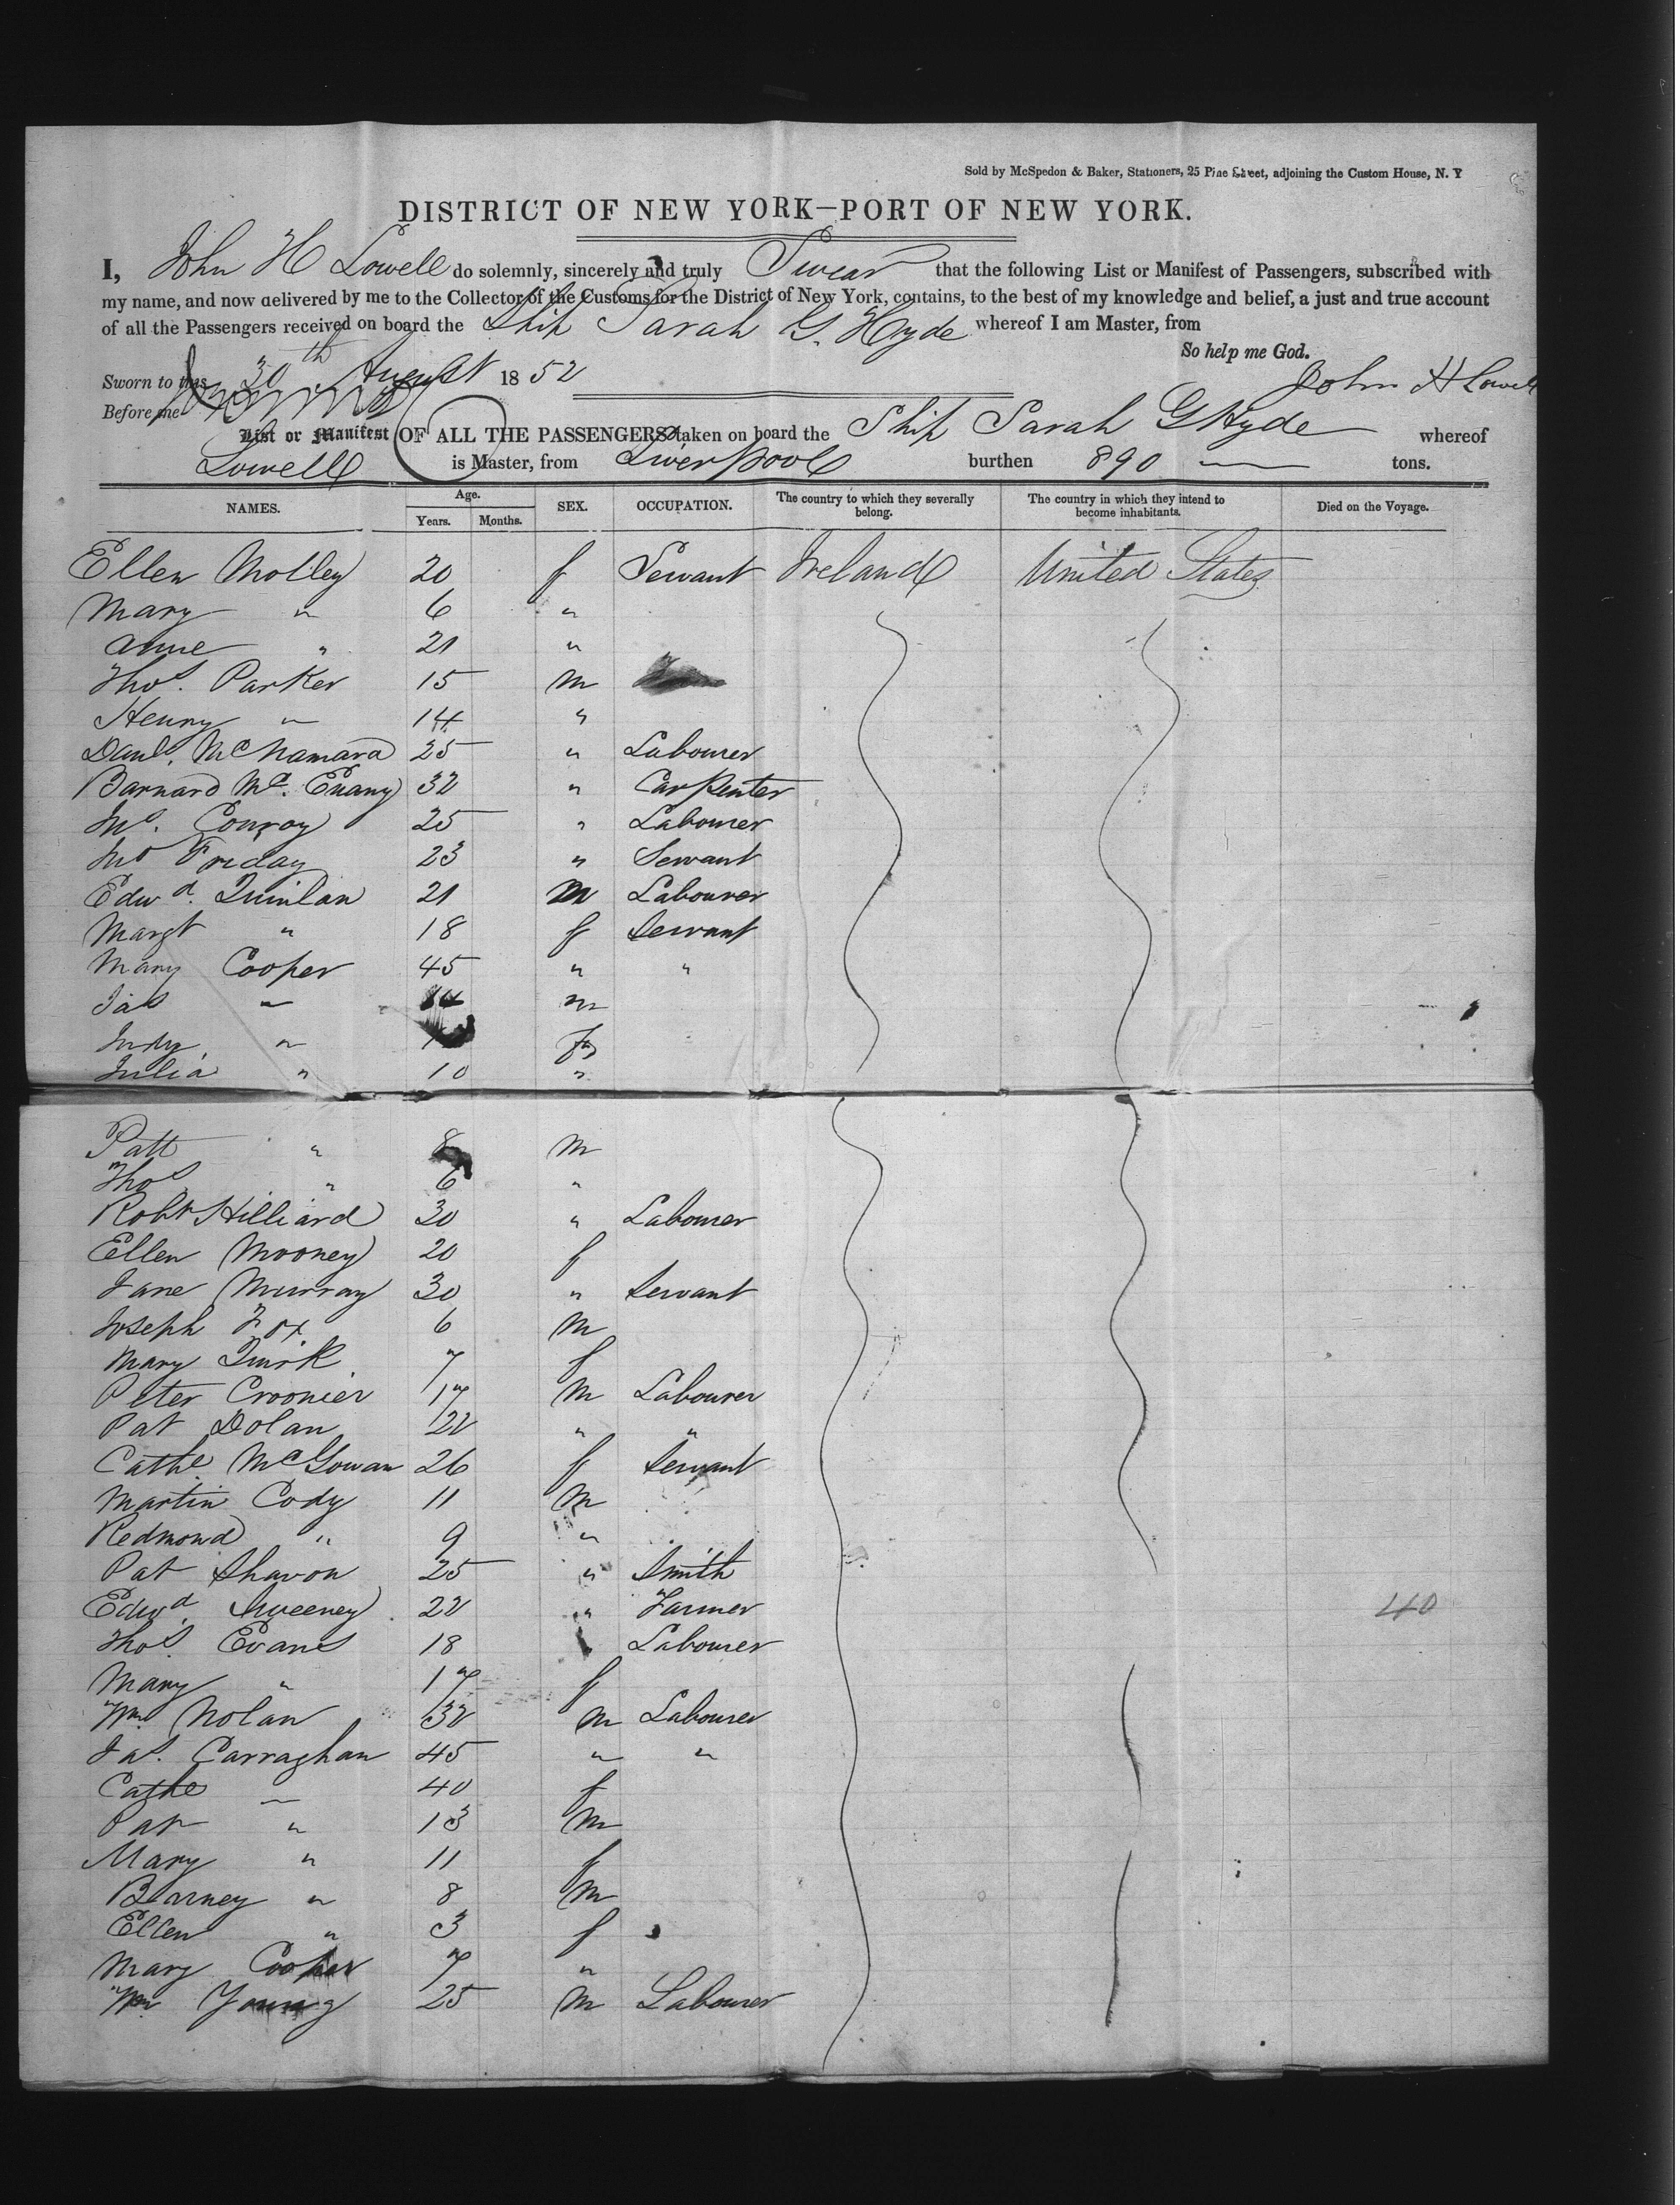 Sold by McSpedon & Baker, Stationers, 25 Pine Street, adjoining the Custom House, N. Y
DISTRICT OF NEW YORK—PORT OF NEW YORK.
I, John H Lowell do solemnly, sincerely and truly Swear that the following List or Manifest of Passengers, subscribed with
my name, and now delivered by me to the Collector of the Customs for the District of New York, contains, to the best of my knowledge and belief, a just and true account
of all the Passengers received on board the Ship Sarah G. Hyde whereof I am Master, from
So help me God.
Sworn to this 30th August 1852 John H Lowell
Before me
List or Manifest OF ALL THE PASSENGERS taken on board the Ship Sarah G Hyde whereof
Lowell is Master, from Liverpool burthen 890 tons.
NAMES. Age. Years. Months. SEX. OCCUPATION. The country to which they severally belong. The country in which they intend to become inhabitants. Died on the Voyage.
Ellen Molley 20 f Servant Ireland United States
Mary " 6 "
Anne " 21 "
Thos. Parker 15 m
Henry " 14 "
Danl. McNamara 25 " Labourer
Barnard Mc. 32 " Carpenter
Jno. Conroy 25 " Labourer
Jno Friday 23 " Servant
Edwd. Quinlan 21 m Labourer
Margt " 18 f Servant
Mary Cooper 45 " "
Jas " 14 m
Judy " f
Julia " 10 "
Patt " 8 m
Thos " 6 "
Robt Hilliard 30 " Labourer
Ellen Mooney 20 f
Jane Murray 30 " Servant
Joseph Fox 6 m
Mary Quirk 7 f
Peter Croonier 17 m Labourer
Pat Dolan 22 " "
Cathe McGowan 26 f Servant
Martin Cody 11 m
Redmond " 9 "
Pat Shavon 25 " Smith
Edwd. Sweeney 22 " Farmer 40
Thos. Evans 18 Labourer
Mary " 17 f
Wm Nolan 32 m Labourer
Jas. Carraghan 45 " "
Cathe " 40 f
Pat " 13 m
Mary " 11 f
Barney " 8 m
Ellen " 3 f
Mary Cooper 7 "
Wm Young 25 m Labourer